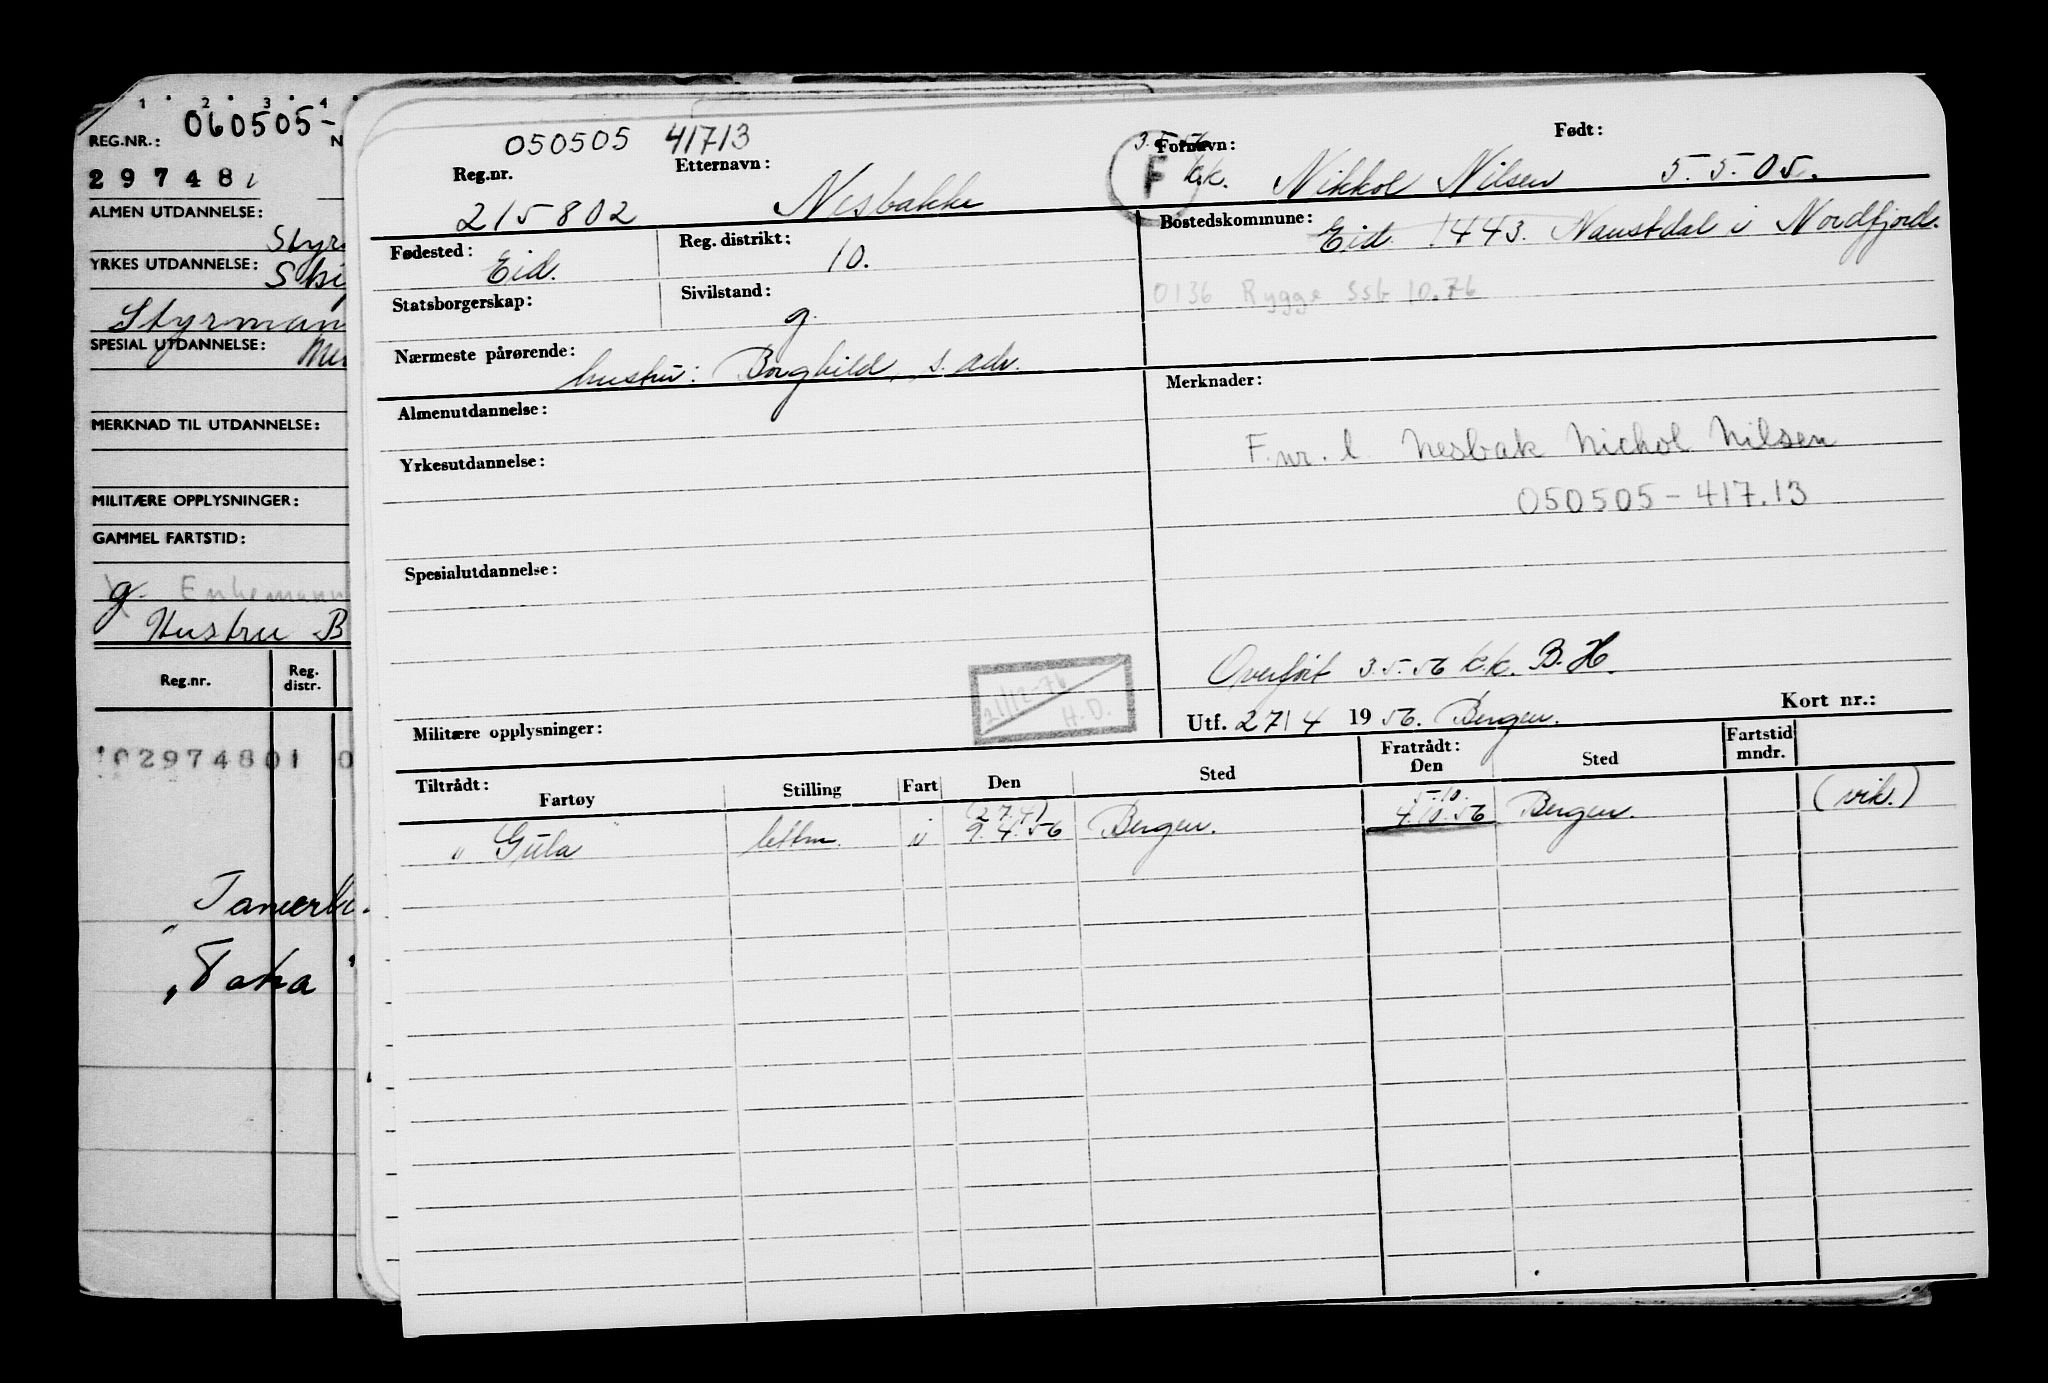 1 2 3 4
060505-
REG.NR.:
N
297481
ALMEN UTDANNELSE:
Styr
YRKES UTDANNELSE:
Ski
Styrman
SPESIAL UTDANNELSE:
MERKNAD TIL UTDANNELSE:
MILITÆRE OPPLYSNINGER:
GAMMEL FARTSTID:
g. Enkemann
Hustru B
Reg.nr. Reg. distr.
102974801 0
"Taka"
050505 41713
Reg.nr. Etternavn: Fornavn: Født:
3.5.56
F k.k.
215802 Nesbakke Nikkol Nilsen 5.5.05.
Fødested: Eid. Reg. distrikt: 10.
Bostedskommune: Eid 1443. Naustdal i Nordfjord.
0136 Rygge Ssb 10.76
Statsborgerskap: Sivilstand: g.
Nærmeste pårørende: hustru: Borghild, s. adr.
Merknader:
Almenutdannelse:
F.nr. l. Nesbak Nichol Nilsen
050505-417.13
Yrkesutdannelse:
Spesialutdannelse:
Overført 3.5.56 k.k. B.H.
21/12-76
H.D.
Militære opplysninger:
Utf. 27/4 1956. Bergen. Kort nr.:
Tiltrådt: Fratrådt: Fartstid mndr.
Fartøy Stilling Fart Den Sted Den Sted
(27.4) 5.10.
"Gula" lettm. u 9.4.56 Bergen. 4.10.56 Bergen. (vik.)